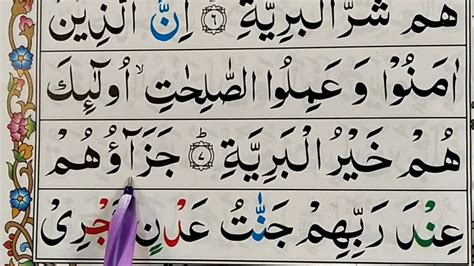 هُمْ شَرُّ الْبَرِيَّةِ ۝٦ اِنَّ الَّذِيْنَ
اٰمَنُوْا وَ عَمِلُوا الصّٰلِحٰتِ ۙ اُولٰٓئِكَ
هُمْ خَيْرُ الْبَرِيَّةِ ۝٧ؕ جَزَآؤُهُمْ
عِنْدَ رَبِّهِمْ جَنّٰتُ عَدْنٍ تَجْرِيْ